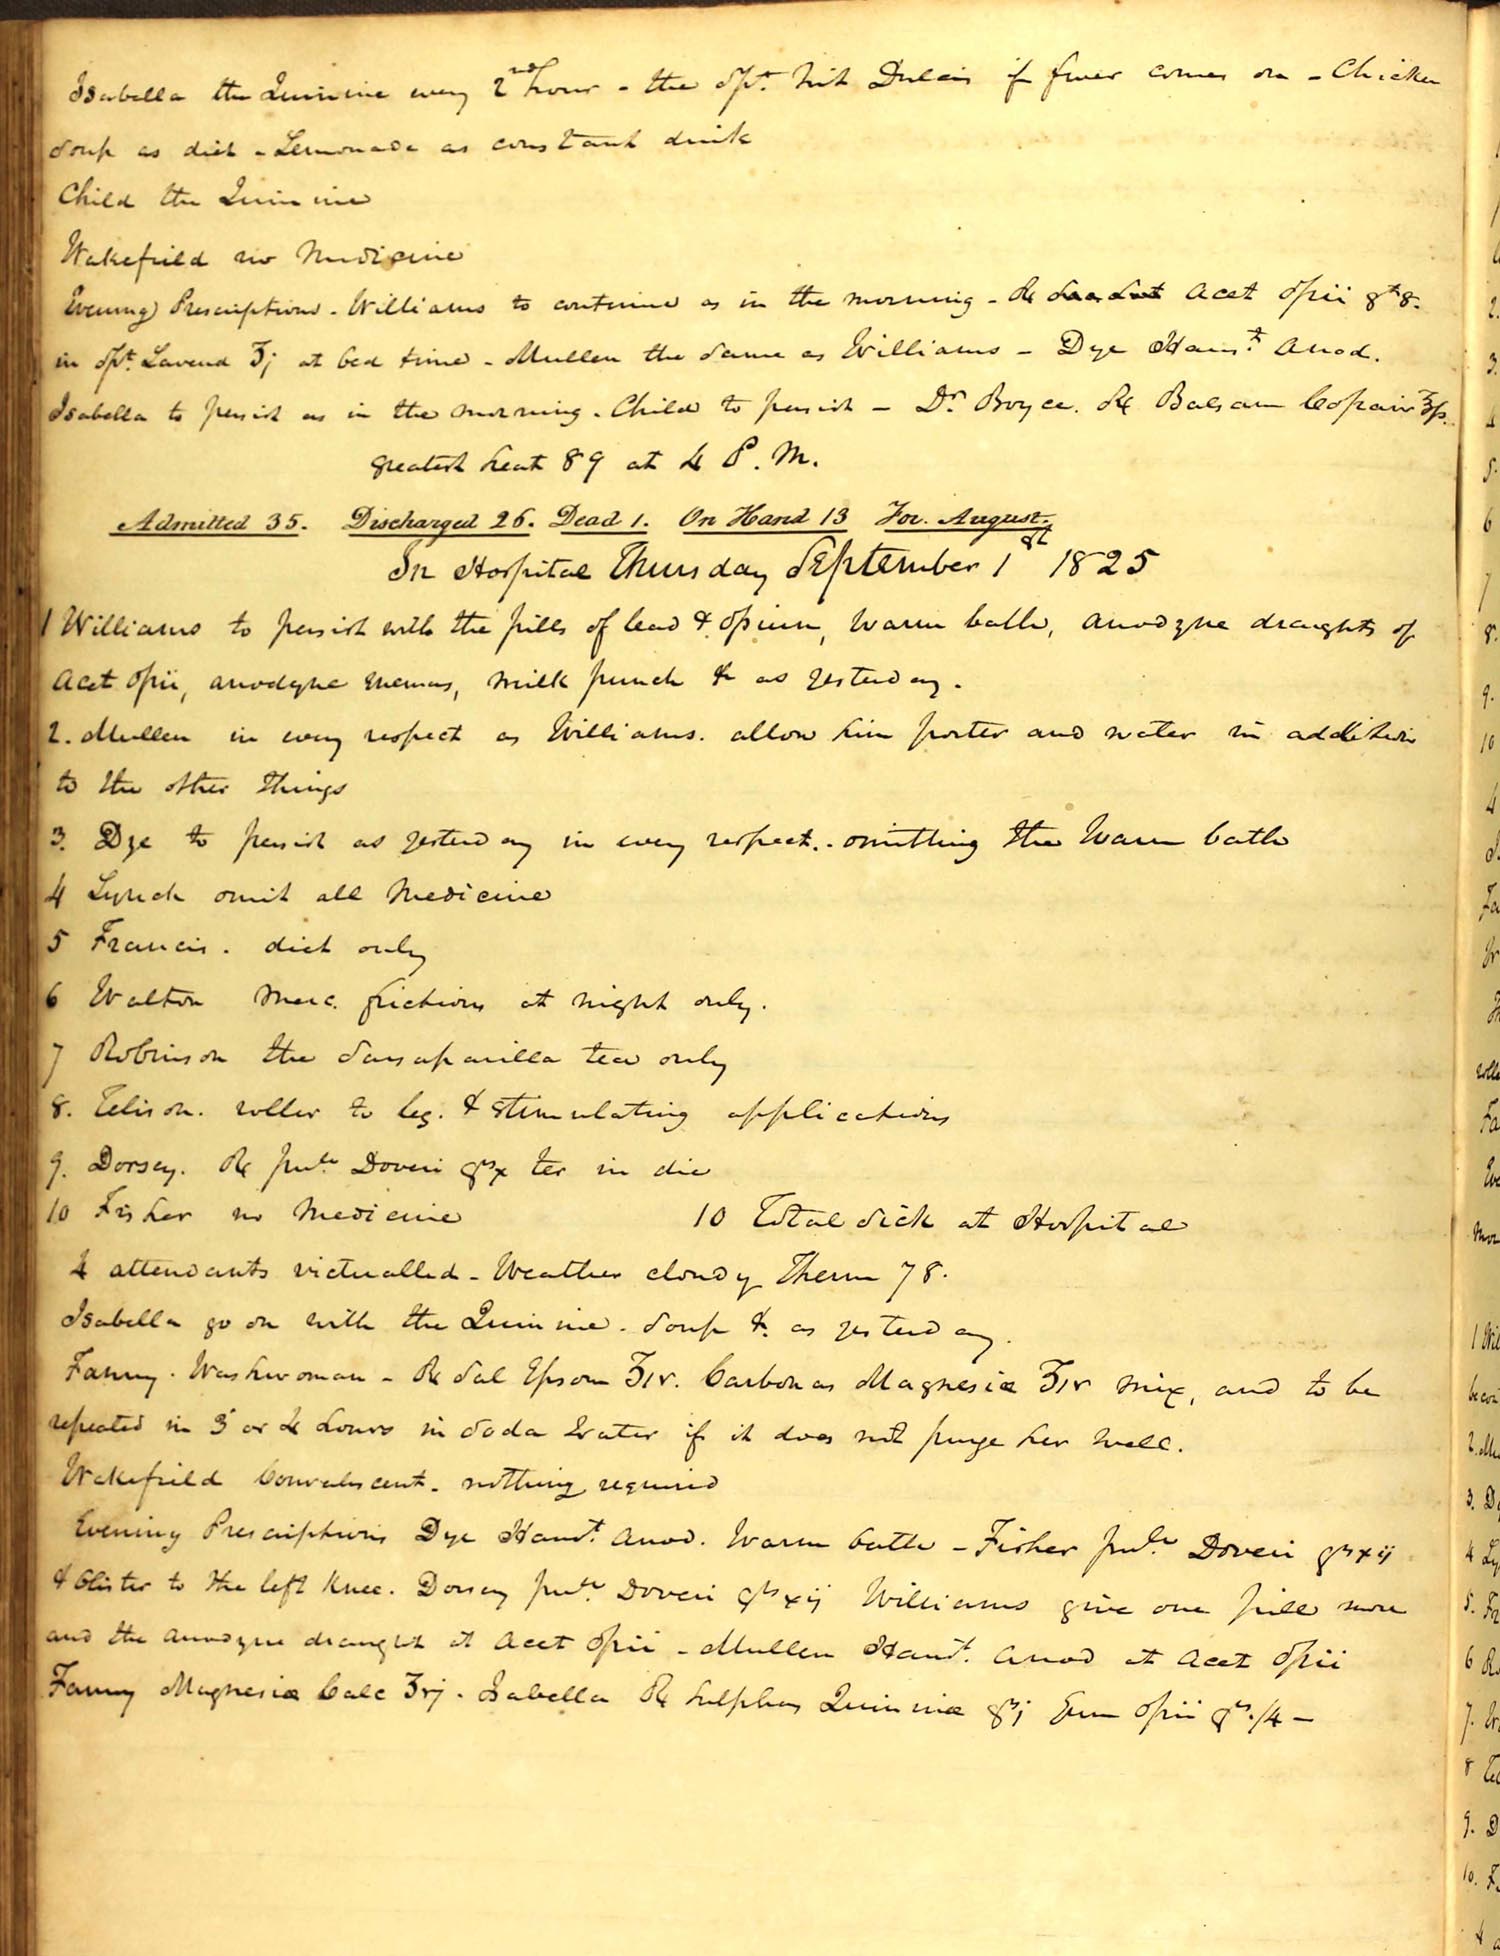 Isabella the Quinine every 2nd hour - the Spt. Nit Dulcis if fever comes on - Chicken
Soup as diet - Lemonade as constant drink
Child the Quinine
Wakefield no Medicine
Evening Prescriptions - Williams to continue as in the morning - ℞ Acet Opii gtt 8.
in Spt. Lavend ʒj at bed time - Mullen the same as Williams - Dye Haust. Anod.
Isabella to persist as in the morning. Child to persist - Dr Boyce. ℞ Balsam Copaiv ℥ss.
greatest heat 89 at 4 P.M.
Admitted 35. Discharged 26. Dead 1. On Hand 13 For. August.
In Hospital Thursday September 1st 1825
1 Williams to persist with the pills of lead & opium, warm bath, anodyne draughts of
Acet Opii, anodyne enemas, milk punch &c as yesterday.
2. Mullen in every respect as Williams. allow him porter and water in addition
to the other things
3. Dye to persist as yesterday in every respect. omitting the warm bath
4 Lynch omit all Medicine
5 Francis. diet only
6 Walton Merc. frictions at night only.
7 Robinson the Sarsaparilla tea only
8. Telison. roller to leg. & stimulating applications
9. Dorsey. ℞ pulv Doveri grs x ter in die
10 Fisher no Medicine 10 Total sick at Hospital
4 attendants victualled - Weather cloudy Therm 78.
Isabella go on with the Quinine. Soup &c. as yesterday.
Fanny. Washwoman - ℞ Sal Epsom ʒiv. Carbonas Magnesiæ ʒiv mix, and to be
repeated in 3 or 4 hours in Soda Water if it does not purge her well.
Wakefield Convalescent. nothing required
Evening Prescriptions Dye Haust. Anod. Warm bath - Fisher pulv. Doveri grs xij
& blister to the left knee. Dorsey pulv. Doveri grs xij Williams give one pill more
and the anodyne draught at Acet Opii - Mullen Haust. Anod at Acet Opii
Fanny Magnesiæ Calc ʒvj. Isabella ℞ Sulphas Quininæ grs j Gum Opii grs. /4 -